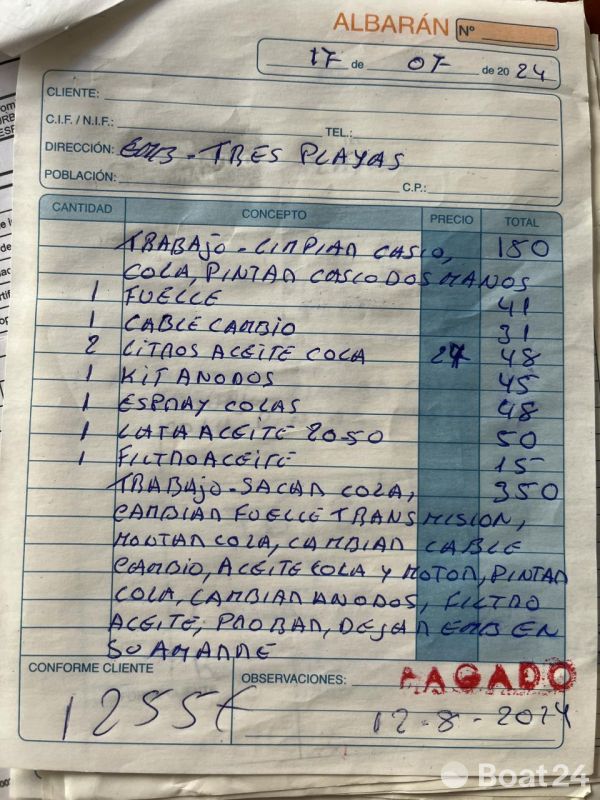 ALBARÁN Nº
17 de 07 de 2024
CLIENTE:
C.I.F. / N.I.F.: TEL.:
DIRECCIÓN: EMB - TRES PLAYAS
POBLACIÓN: C.P.:
CANTIDAD CONCEPTO PRECIO TOTAL
TRABAJO - LIMPIAR CASCO, 150
COLA, PINTAR CASCO DOS MANOS
1 FUELLE 41
1 CABLE CAMBIO 31
2 LITROS ACEITE COLA 24 48
1 KIT ANODOS 45
1 ESPRAY COLAS 48
1 LATA ACEITE 20-50 50
1 FILTRO ACEITE 15
TRABAJO - SACAR COLA, 350
CAMBIAR FUELLE TRANSMISION,
MONTAR COLA, CAMBIAR CABLE
CAMBIO, ACEITE COLA Y MOTOR, PINTAR
COLA, CAMBIAR ANODOS, FILTRO
ACEITE, PROBAR, DEJAR EMB EN
SO AMARRE
CONFORME CLIENTE OBSERVACIONES: PAGADO
1255€ 12-8-2024
Boat24